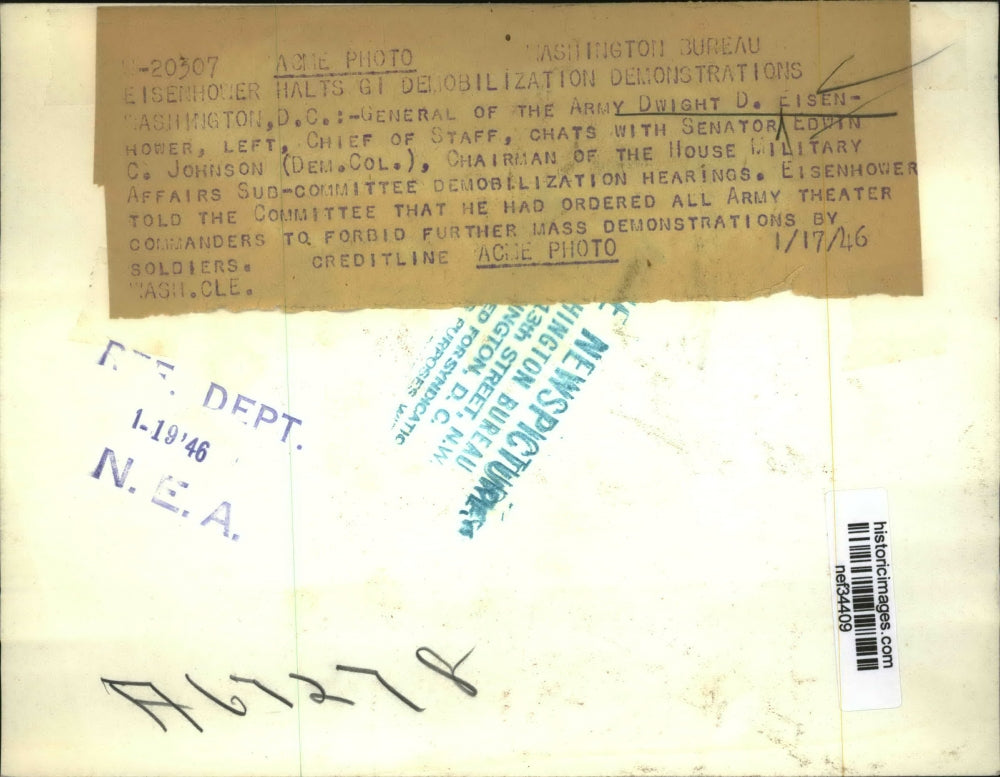 W-20307 ACME PHOTO WASHINGTON BUREAU
EISENHOWER HALTS GI DEMOBILIZATION DEMONSTRATIONS
WASHINGTON, D.C.:-GENERAL OF THE ARMY DWIGHT D. EISEN-
HOWER, LEFT, CHIEF OF STAFF, CHATS WITH SENATOR EDWIN
C. JOHNSON (DEM.COL.), CHAIRMAN OF THE HOUSE MILITARY
AFFAIRS SUB-COMMITTEE DEMOBILIZATION HEARINGS. EISENHOWER
TOLD THE COMMITTEE THAT HE HAD ORDERED ALL ARMY THEATER
COMMANDERS TO FORBID FURTHER MASS DEMONSTRATIONS BY
SOLDIERS. CREDITLINE ACME PHOTO 1/17/46
WASH.CLE.
REF. DEPT.
1-19'46
N. E. A.
NEWSPICTURE
HINGTON BUREAU
13th STREET, N.W.
INGTON, D. C.
ED FOR SYNDICATIO
PURPOSES
historicimages.com
nef34409